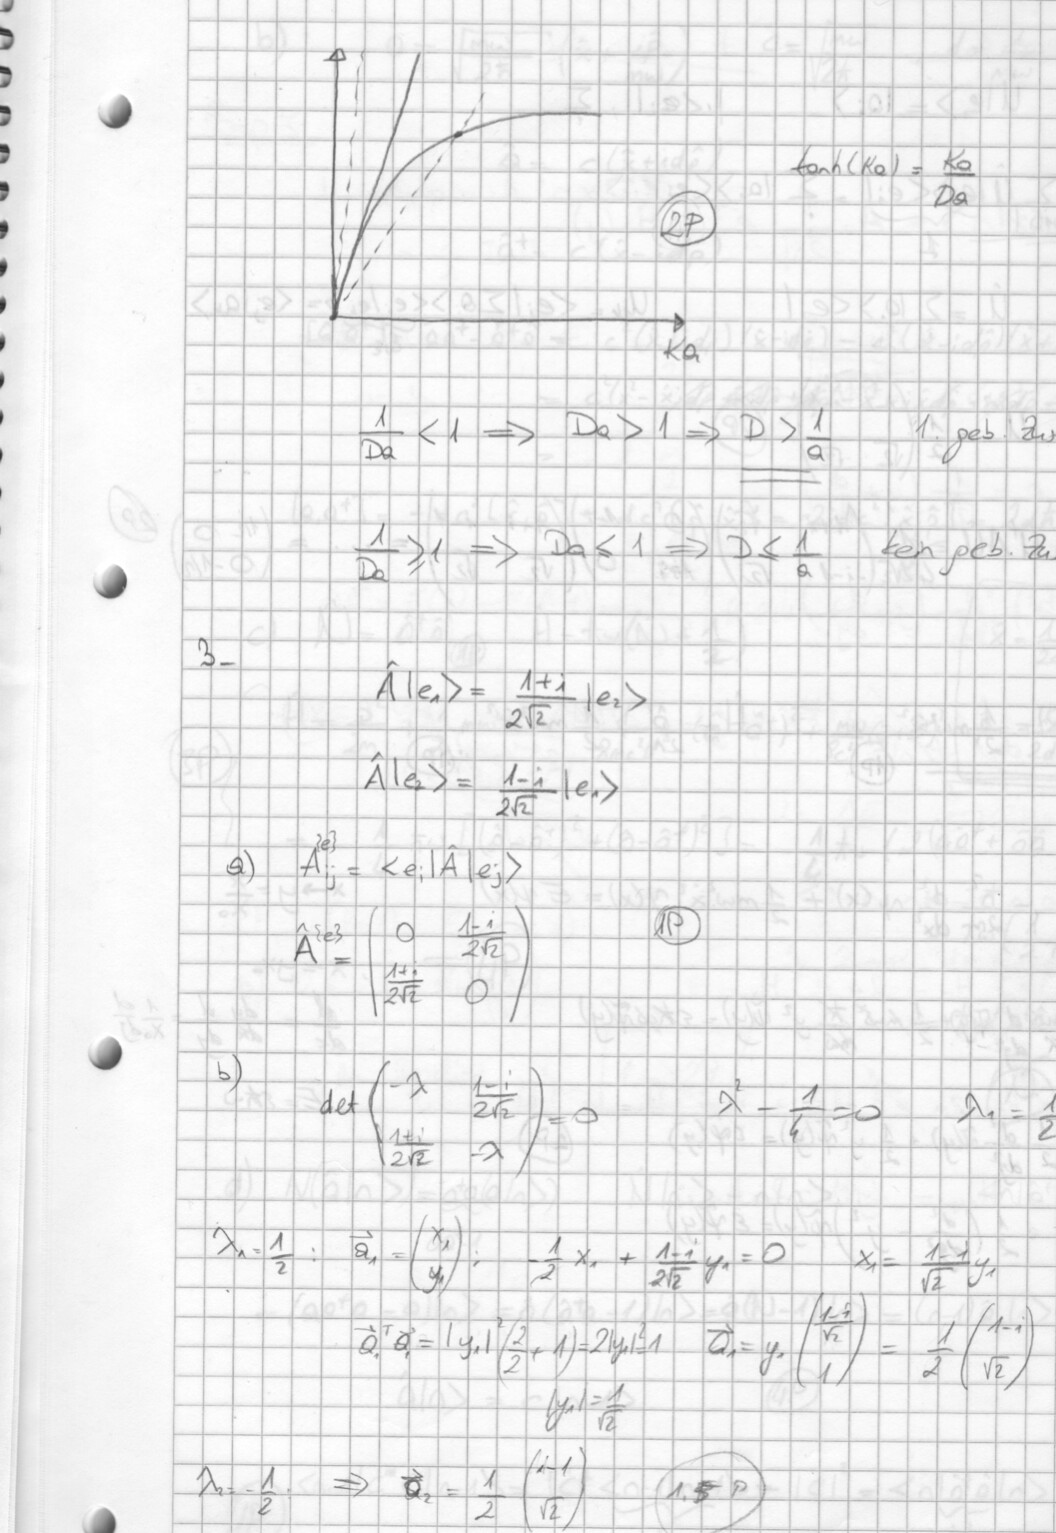 tanh(Ka) = Ka/Da
2P
Ka
1/Da < 1 ⇒ Da > 1 ⇒ D > 1/a 1. geb. Zu
1/Da ⩾ 1 ⇒ Da ⩽ 1 ⇒ D ⩽ 1/a kein geb. Zu
3-
Â|e₁> = (1+i)/(2√2) |e₂>
Â|e₂> = (1-i)/(2√2) |e₁>
a) Â_ij^{e} = <e_i|Â|e_j>
Â^{e} = (0 (1-i)/(2√2) ; (1+i)/(2√2) 0) 1P
b) det (-λ (1-i)/(2√2) ; (1+i)/(2√2) -λ) = 0 λ² - 1/4 = 0 λ₁ = 1/2
λ₁ = 1/2 : a⃗₁ = (x₁ ; y₁) ; -1/2 x₁ + (1-i)/(2√2) y₁ = 0 x₁ = (1-i)/√2 y₁
a⃗₁ᵀ a⃗₁ = |y₁|² (2/2 + 1) = 2|y₁|² = 1 a⃗₁ = y₁ ((1-i)/√2 ; 1) = 1/2 (1-i ; √2)
|y₁| = 1/√2
λ₂ = -1/2 : ⇒ a⃗₂ = 1/2 (i-1 ; √2) 1.5 P